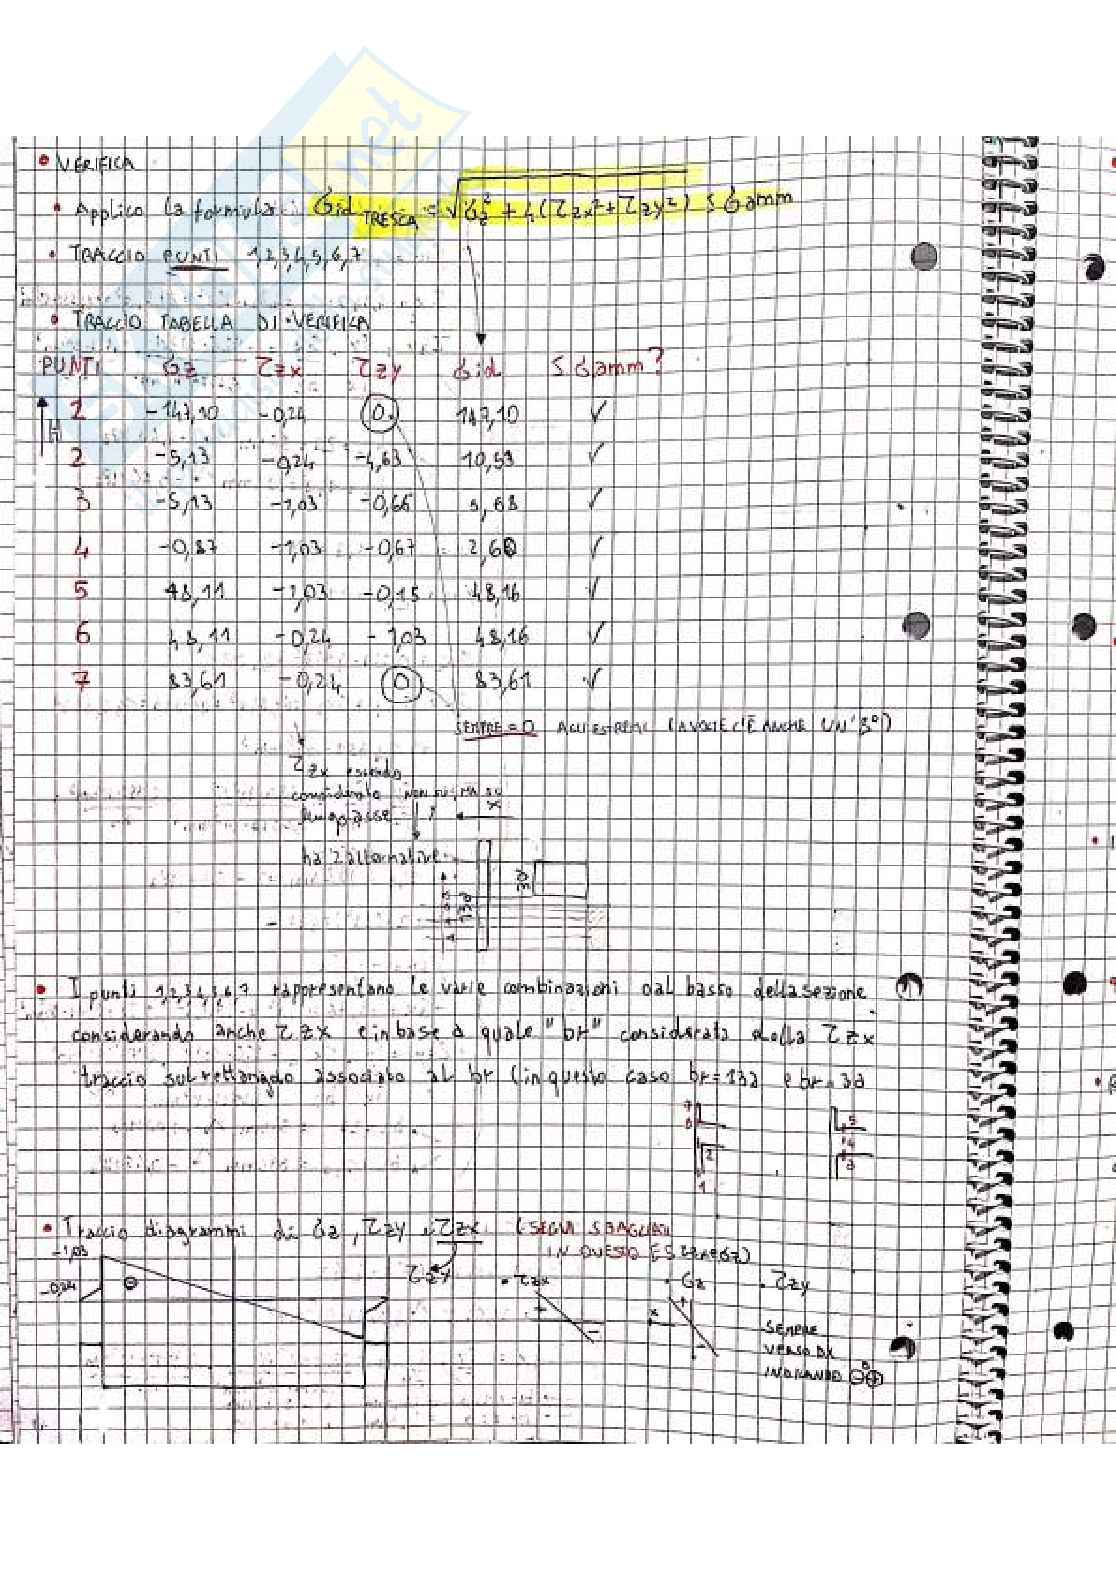 • VERIFICA
• Applico la formula: σid TRESCA = √σz² + 4(τzx² + τzy²) ≤ σamm
• TRACCIO PUNTI 1,2,3,4,5,6,7
• TRACCIO TABELLA DI VERIFICA
PUNTI σz τzx τzy σid ≤ σamm?
1 -147,10 -0,24 0 147,10 ✓
2 -5,13 -0,24 -4,63 10,53 ✓
3 -5,13 -1,03 -0,66 5,68 ✓
4 -0,87 -1,03 -0,67 2,60 ✓
5 48,11 -1,03 -0,15 48,16 ✓
6 48,11 -0,24 -1,03 48,16 ✓
7 83,61 -0,24 0 83,61 ✓
SEMPRE = 0 AGLI ESTREMI (A VOLTE C'È ANCHE UN 3°)
τzx essendo
considerato NON SU, MA SU
lungo asse Y X
ha 2 alternative
132
32
• I punti 1,2,3,4,5,6,7 rappresentano le varie combinazioni dal basso della sezione
considerando anche τzx e in base a quale "br" considerata della τzx
traccio sul rettangolo associato al br (in questo caso br=132 e br=32
7
6 5
2 4
1 3
• Traccio diagrammi di σz, τzy, τzx (SEGNI SBAGLIATI
IN QUESTO ESERCIZIO)
-1,03
-0,24 ⊖
τzx • τzx • σz • τzy
+ - x + -
SEMPRE
VERSO DX
INDICANDO ⊖ O ⊕